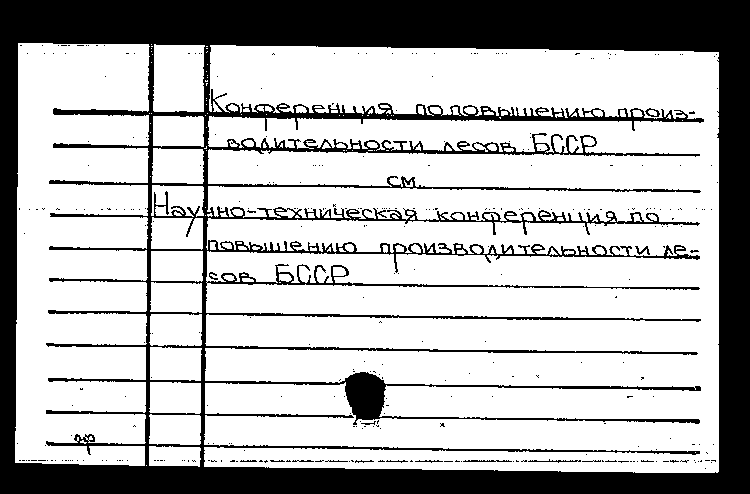 Конференция по повышению произ-
водительности лесов БССР
см.
Научно-техническая конференция по
повышению производительности ле-
сов БССР